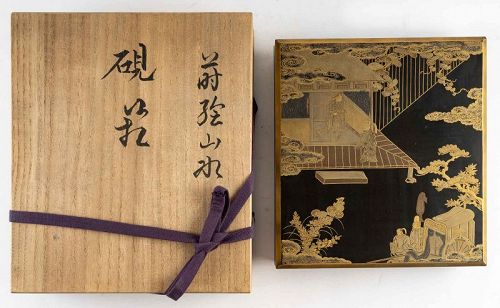 蒔絵山水
硯筥